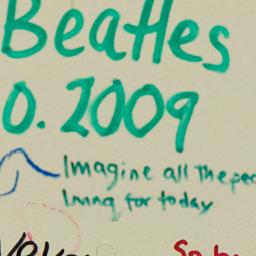 Beatles
0.2009
Imagine all The peo
living for today